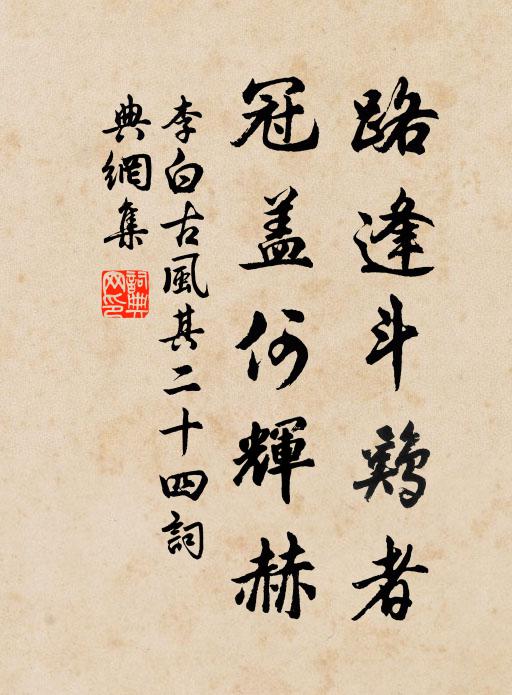 路逢斗鷄者
冠盖何輝赫
李白古風其二十四詞
典網集
詞典网印